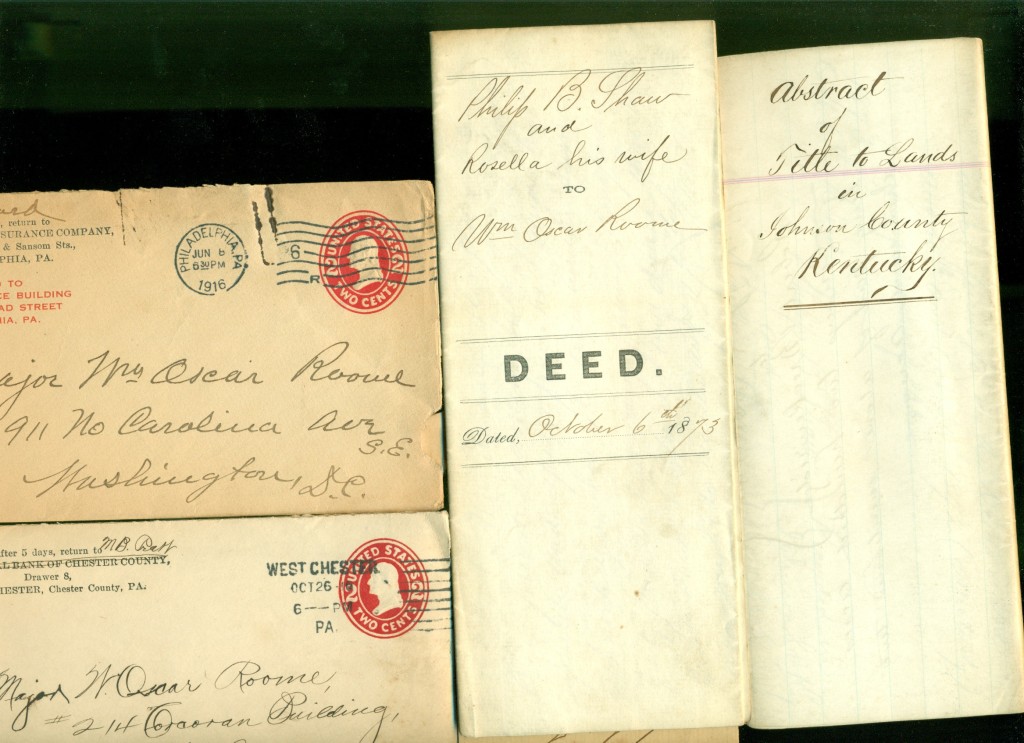 , return to
SURANCE COMPANY,
& Sansom Sts.,
PHIA, PA.
TO
CE BUILDING
AD STREET
IA, PA.
PHILADELPHIA, PA.
JUN 8
6 30 PM
1916
6
R
UNITED STATES
2 2
TWO CENTS
ajor Wm Oscar Roome
911 No Carolina Ave
S.E.
Washington, D.C.
fter 5 days, return to
L BANK OF CHESTER COUNTY,
Drawer 8,
HESTER, Chester County, PA.
WEST CHESTER
OCT 26
6 -- PM
PA.
UNITED STATES
2 2
TWO CENTS
Major W. Oscar Roome,
# 214 Corcoran Building,
Philip B. Shaw
and
Rosella his wife
TO
Wm Oscar Roome
DEED.
Dated, October 6th 1873
Abstract
of
Title to Lands
in
Johnson County
Kentucky.